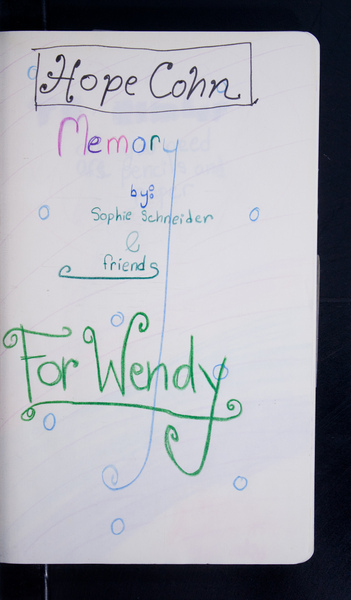 Hope Cohn
Memory
by:
Sophie Schneider
&
friends
For Wendy